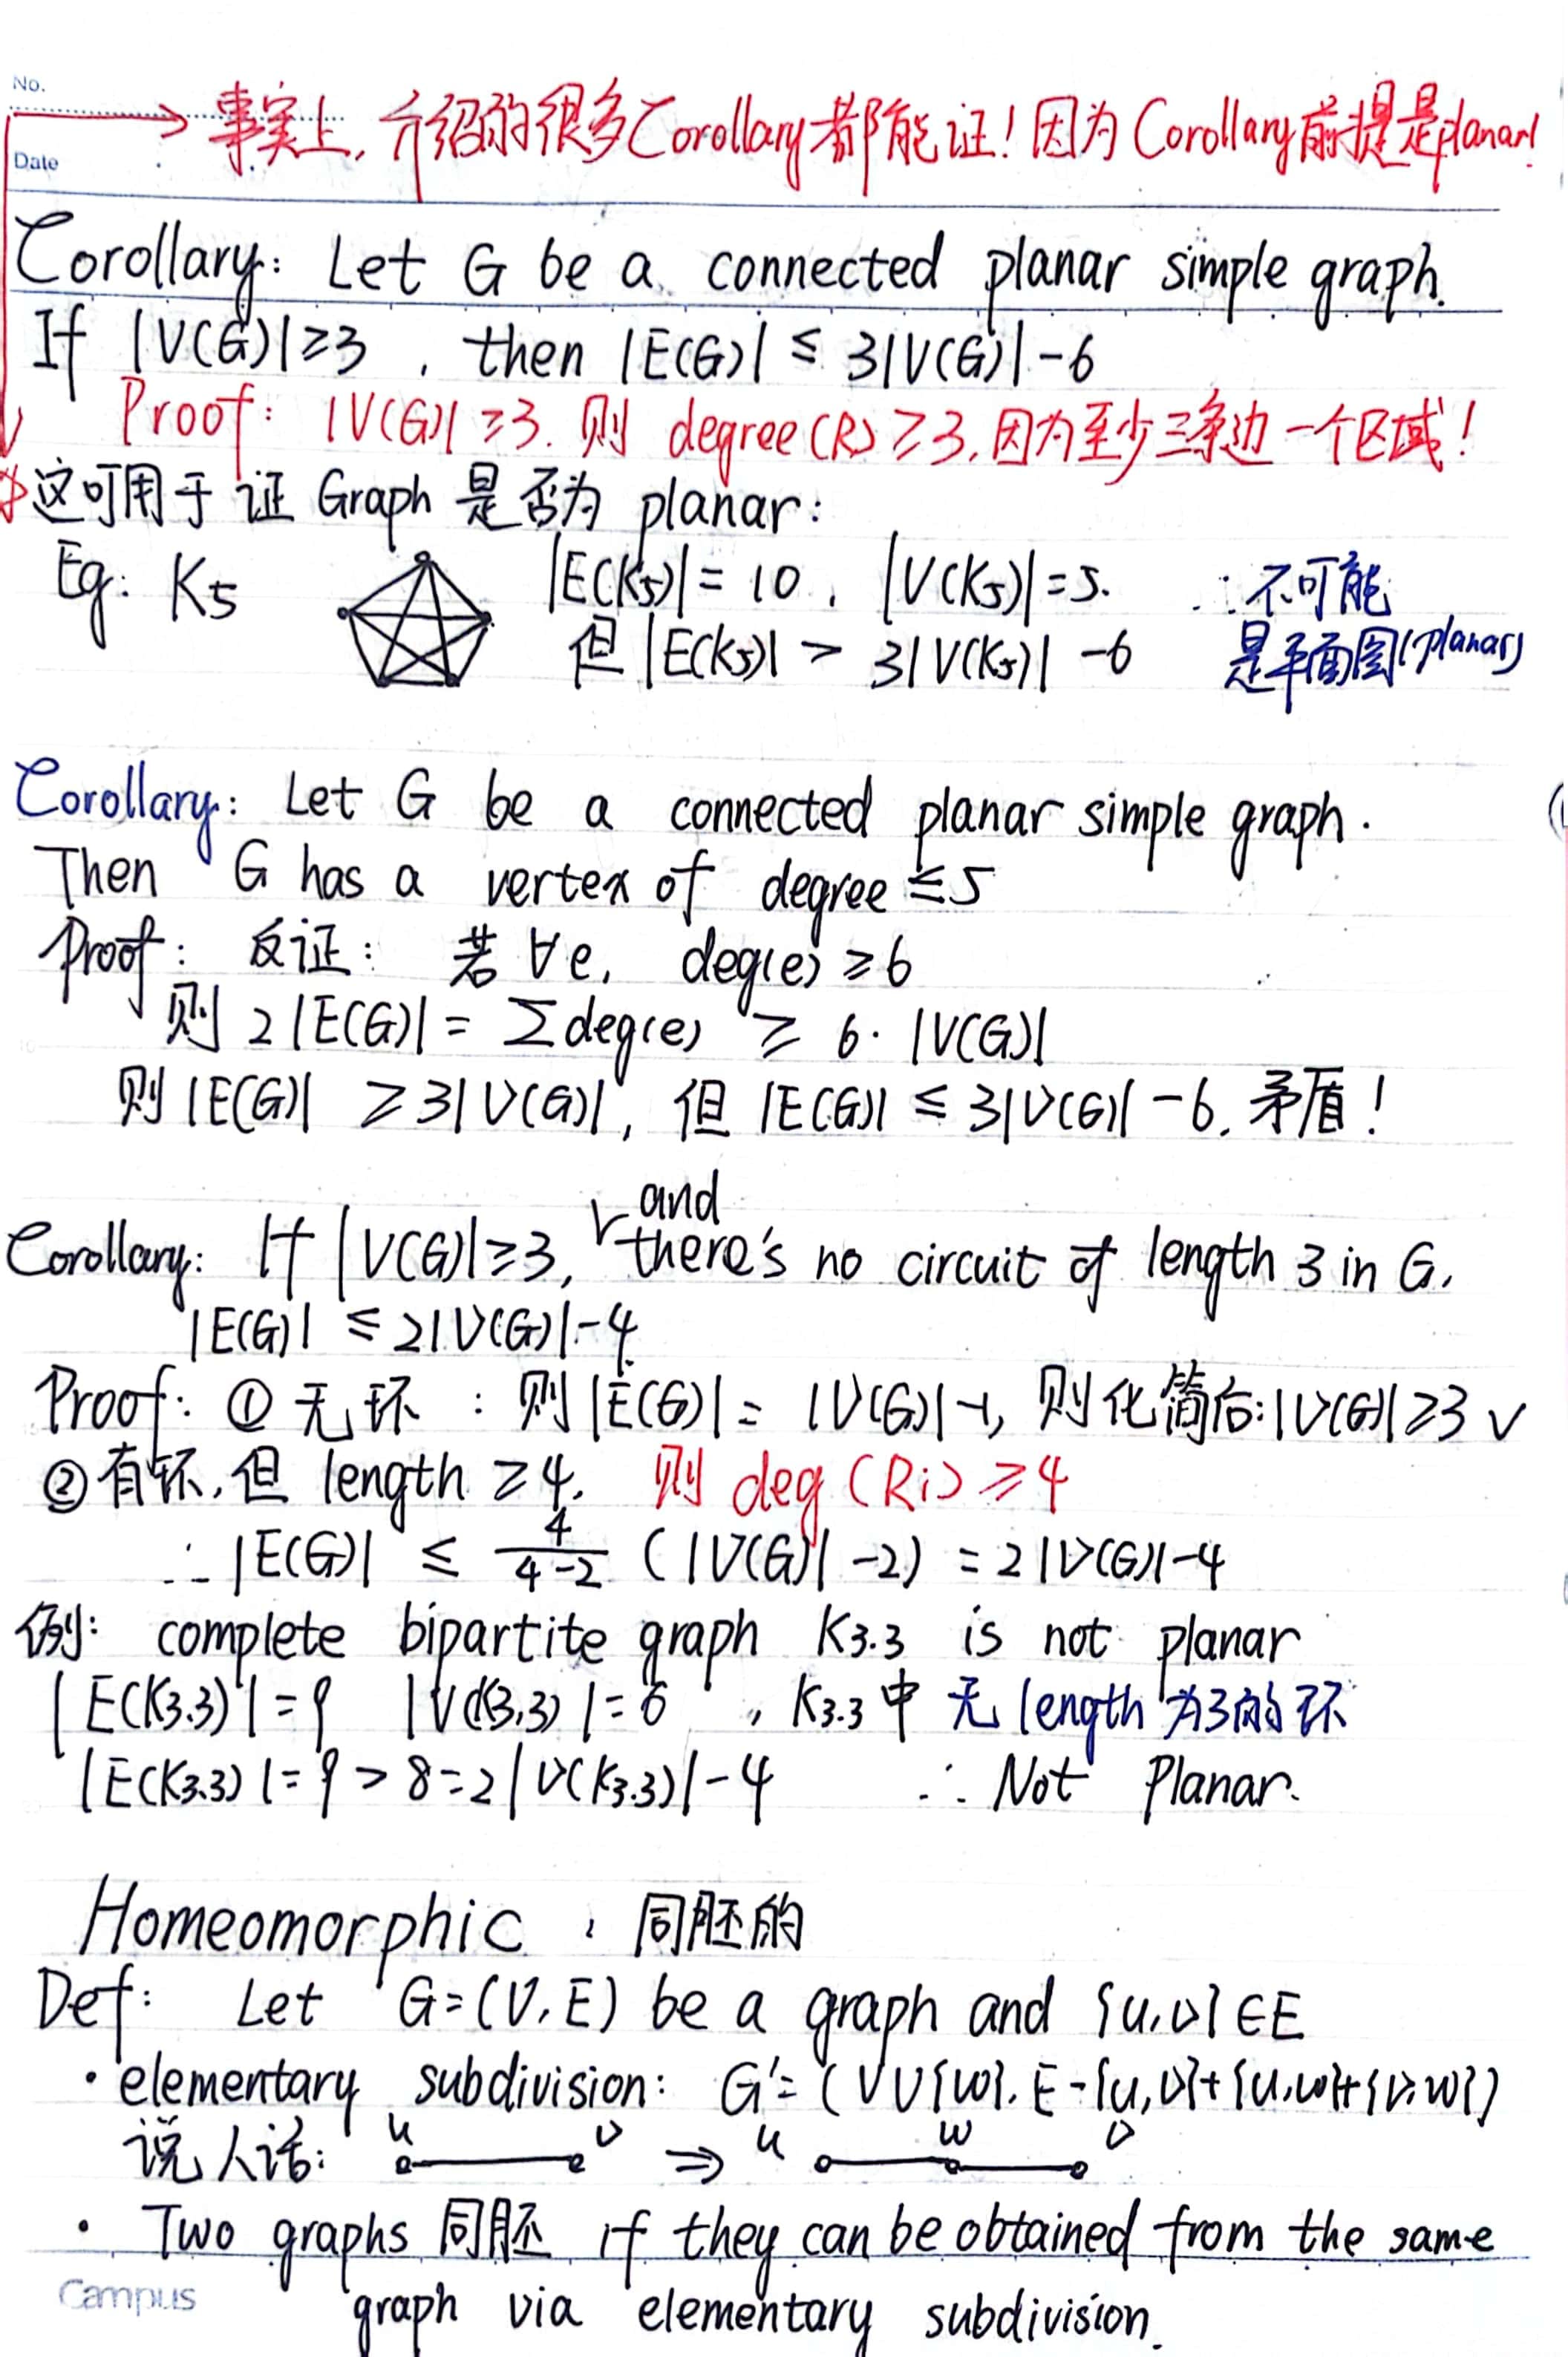 No.
→ 事实上，介绍的很多Corollary都能证！因为Corollary前提是planar!
Date
Corollary: Let G be a connected planar simple graph.
If |V(G)|≥3, then |E(G)| ≤ 3|V(G)|-6
Proof: |V(G)|≥3. 则 degree(R)≥3, 因为至少三条边一个区域！
这可用于证 Graph 是否为 planar:
Eg: K5 |E(K5)|=10, |V(K5)|=5. ∴不可能
但 |E(K5)| > 3|V(K5)| -6 是平面图(planar)
Corollary: Let G be a connected planar simple graph.
Then G has a vertex of degree ≤5
Proof: 反证: 若 ∀e, deg(e) ≥6
则 2|E(G)| = Σdeg(e) ≥ 6·|V(G)|
则 |E(G)| ≥3|V(G)|, 但 |E(G)| ≤ 3|V(G)| -6. 矛盾！
and
Corollary: If |V(G)|≥3, there's no circuit of length 3 in G.
|E(G)| ≤2|V(G)|-4
Proof: ① 无环: 则|E(G)|= |V(G)|-1, 则化简后:|V(G)|≥3 √
② 有环,但 length ≥4. 则 deg(Ri) ≥4
∴ |E(G)| ≤ 4/(4-2) (|V(G)| -2) = 2|V(G)|-4
例: complete bipartite graph K3.3 is not planar
|E(K3.3)|=9 |V(K3,3)|=6, K3.3 中 无 length 为3的环
|E(K3.3)|=9 > 8=2|V(K3.3)|-4 ∴ Not Planar.
Homeomorphic, 同胚的
Def: Let G=(V,E) be a graph and {u,v}∈E
· elementary subdivision: G'= (V∪{w}, E-{u,v}+{u,w}+{v,w})
说人话: u v ⇒ u w v
· Two graphs 同胚 if they can be obtained from the same
graph via elementary subdivision.
Campus